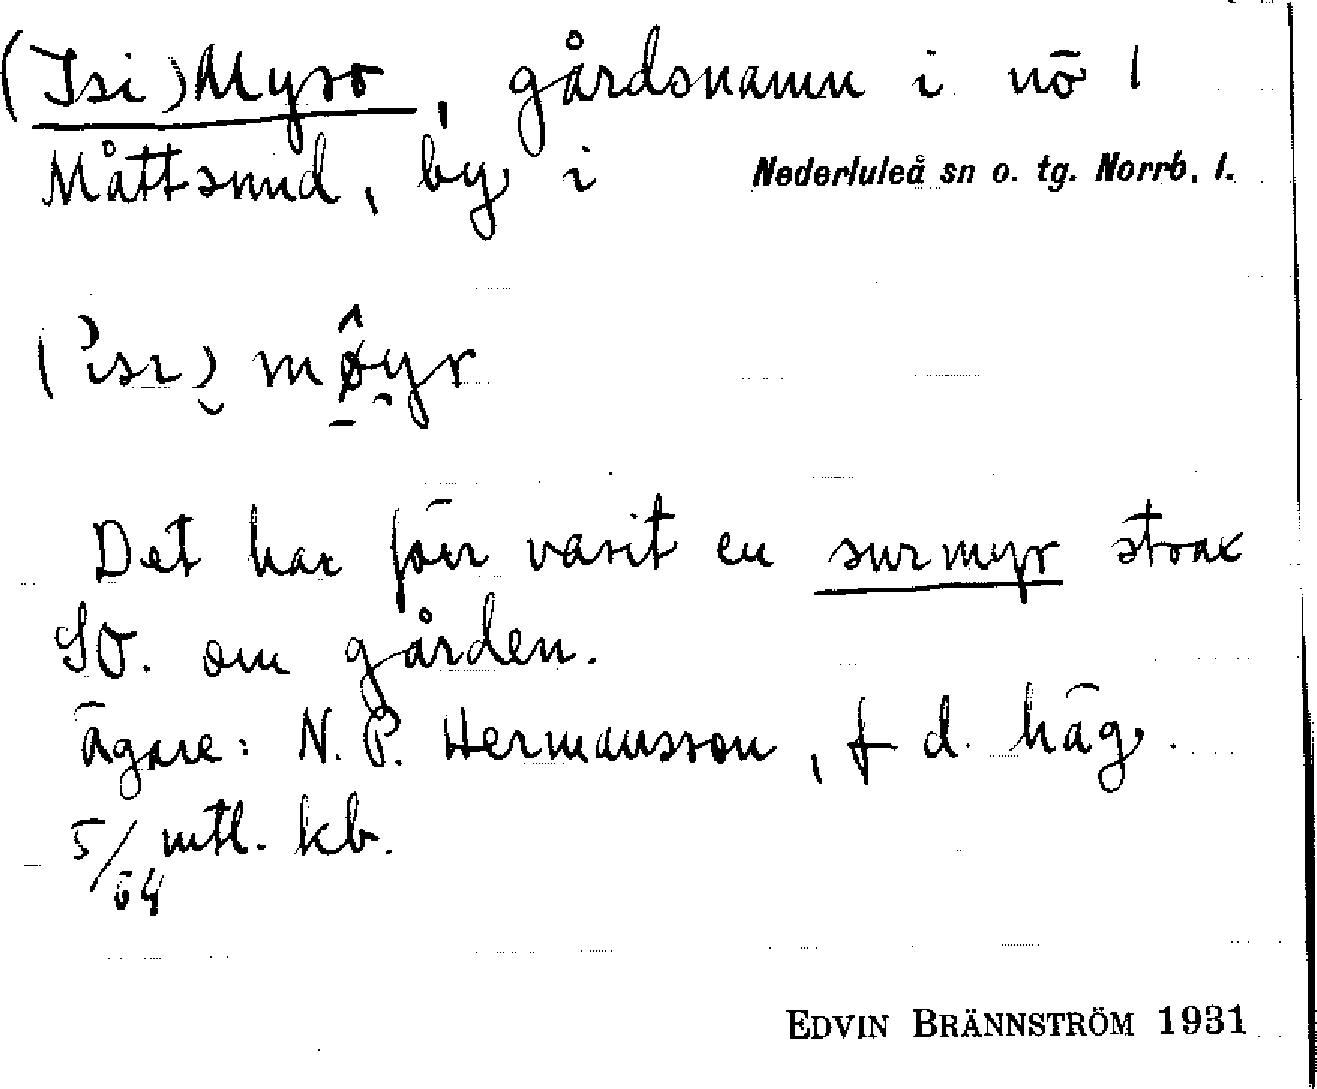 (Isi)Myro, gårdsnamn i nö 1
Måttsund, by i Nederluleå sn o. tg. Norrb. l.
Det har förr varit en surmyr strax
SO. om gården.
ägare: N. P. Hermansson, f d. häg.
5/64 mtl. kb.
EDVIN BRÄNNSTRÖM 1931